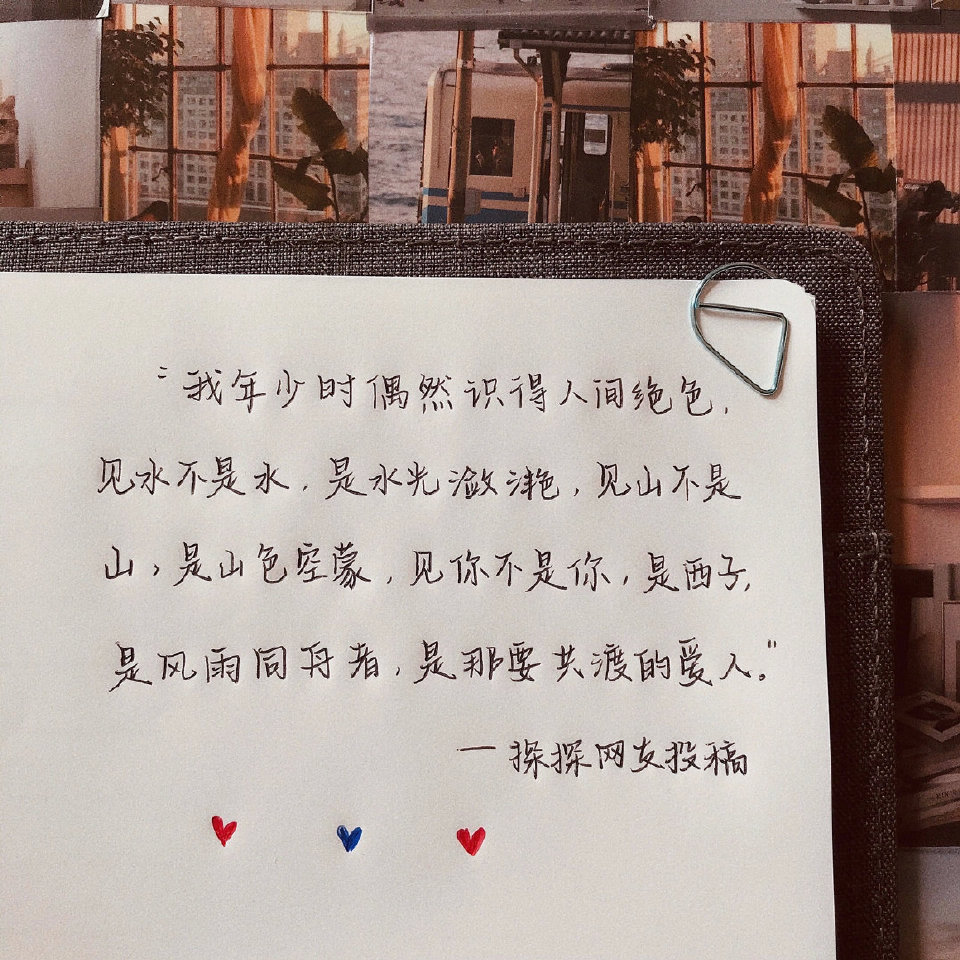 “我年少时偶然识得人间绝色,
见水不是水,是水光潋滟,见山不是
山,是山色空蒙,见你不是你,是西子,
是风雨同舟者,是那要共渡的爱人。”
一探探网友投稿